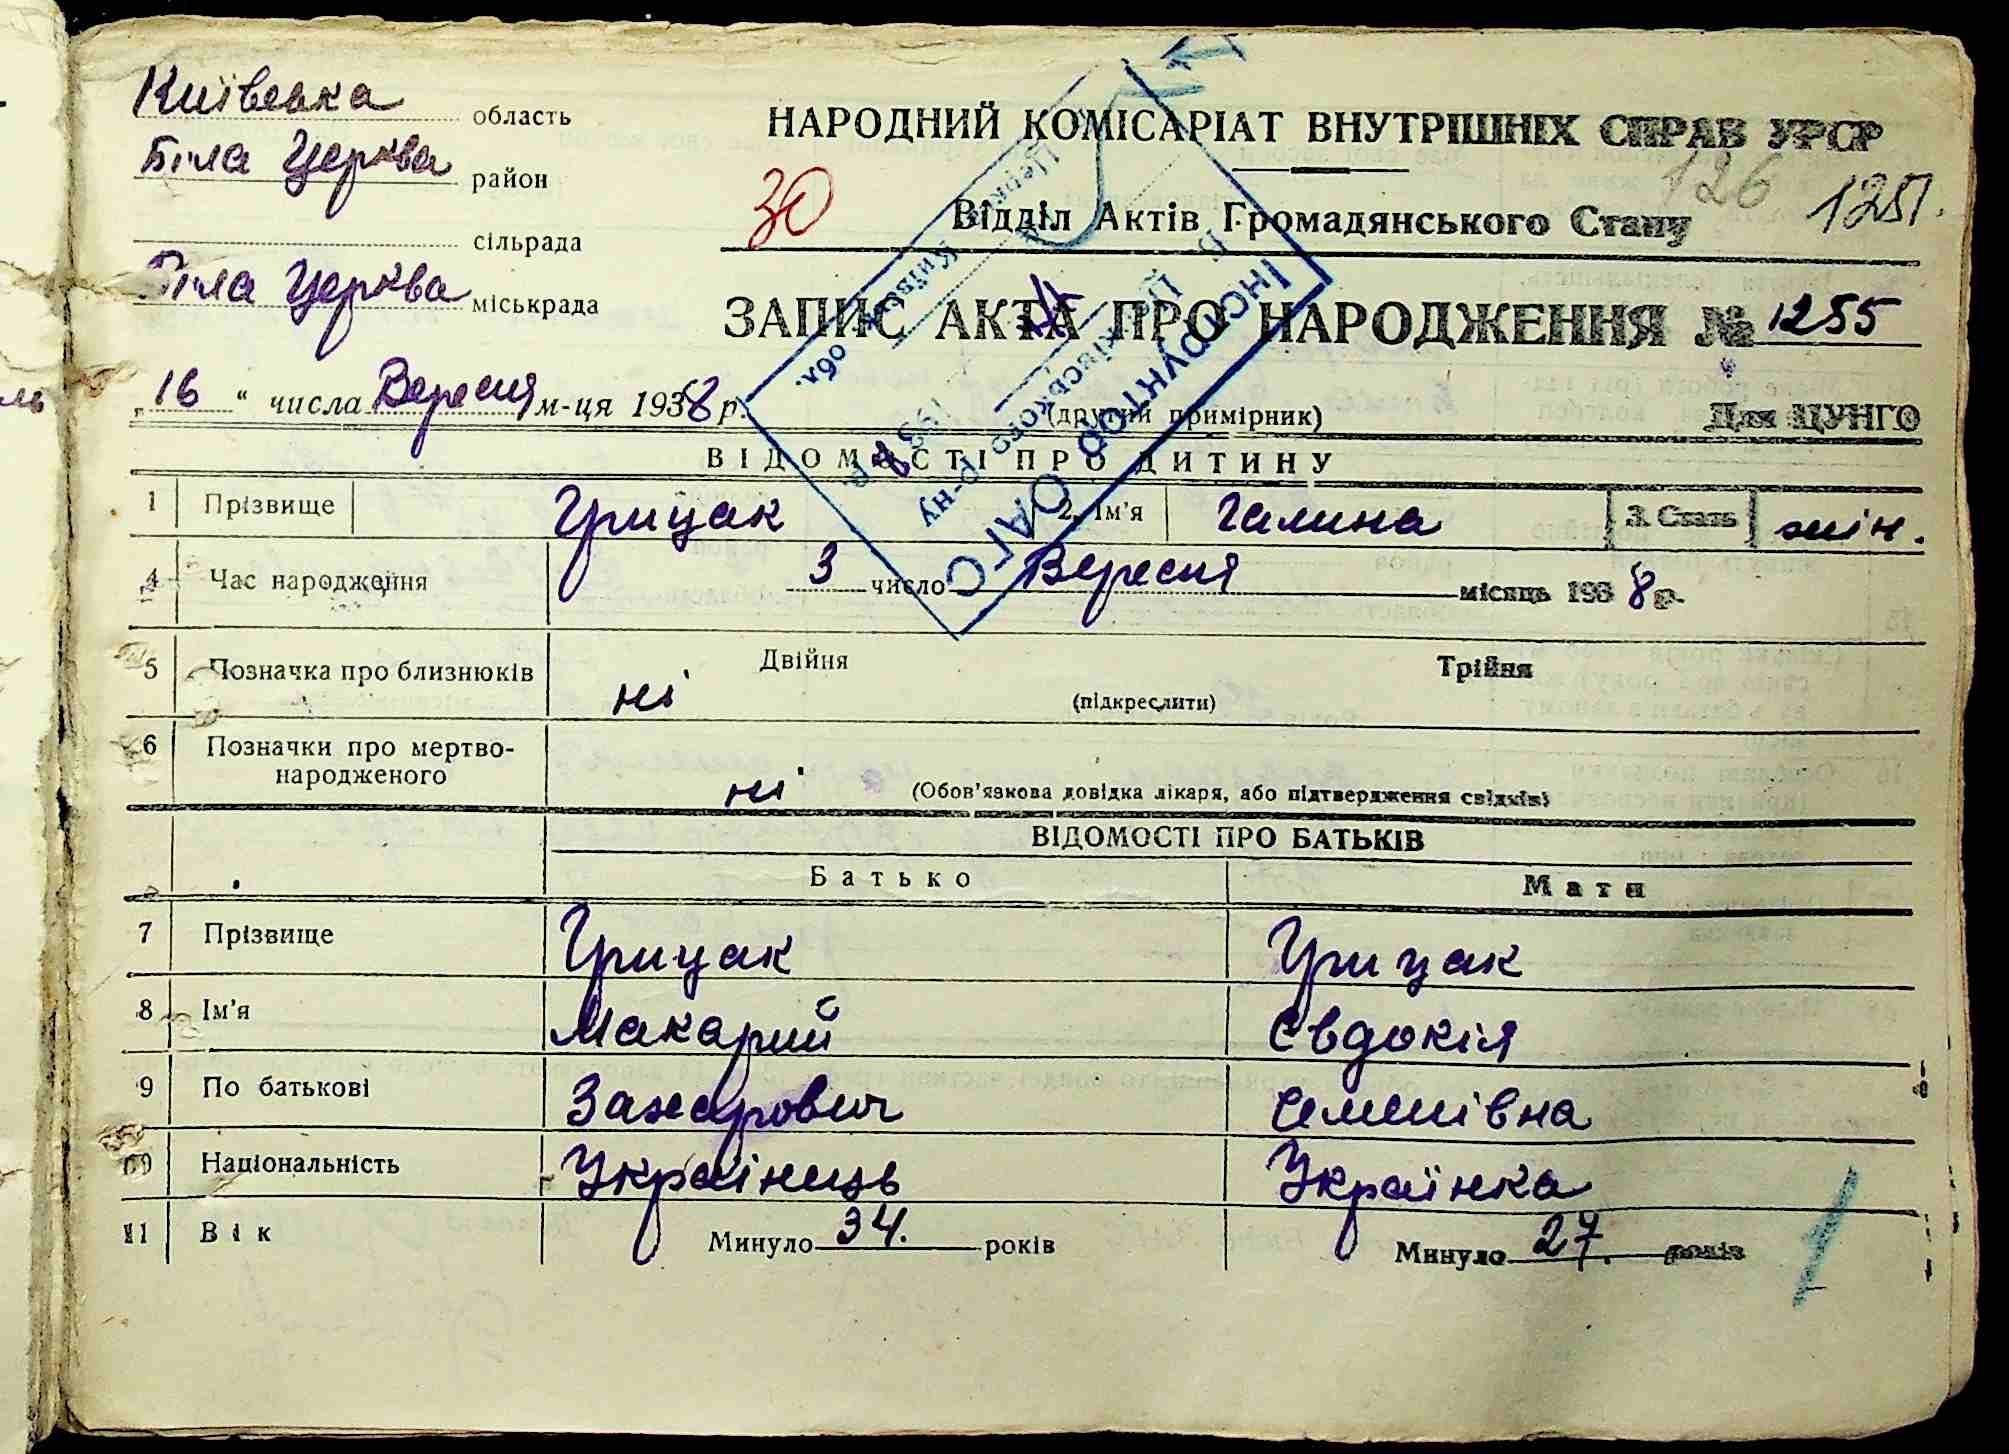 Київська область
Біла Церква район
сільрада
Біла Церква міськрада
НАРОДНИЙ КОМІСАРІАТ ВНУТРІШНІХ СПРАВ УРСР
126
30
Відділ Актів Громадянського Стану
ЗАПИС АКТА ПРО НАРОДЖЕННЯ № 1255
„16“ числа Вересня м-ця 1938 р.
(другий примірник)
Для ЦУНГО
Інспектор ОАГС
Київськ обл.
193 р.
ВІДОМОСТІ ПРО ДИТИНУ
1 Прізвище Грицак 2. Ім'я Галина 3. Стать жін.
4 Час народження 3 число Вересня місяць 1938 р.
5 Позначка про близнюків ні Двійня Трійня
(підкреслити)
6 Позначки про мертво-
народженого ні (Обов'язкова довідка лікаря, або підтвердження свідків)
ВІДОМОСТІ ПРО БАТЬКІВ
Батько Мати
7 Прізвище Грицак Грицак
8 Ім'я Макарий Євдокія
9 По батькові Захарович Семенівна
10 Національність Українець Українка
11 Вік Минуло 34. років Минуло 27. років